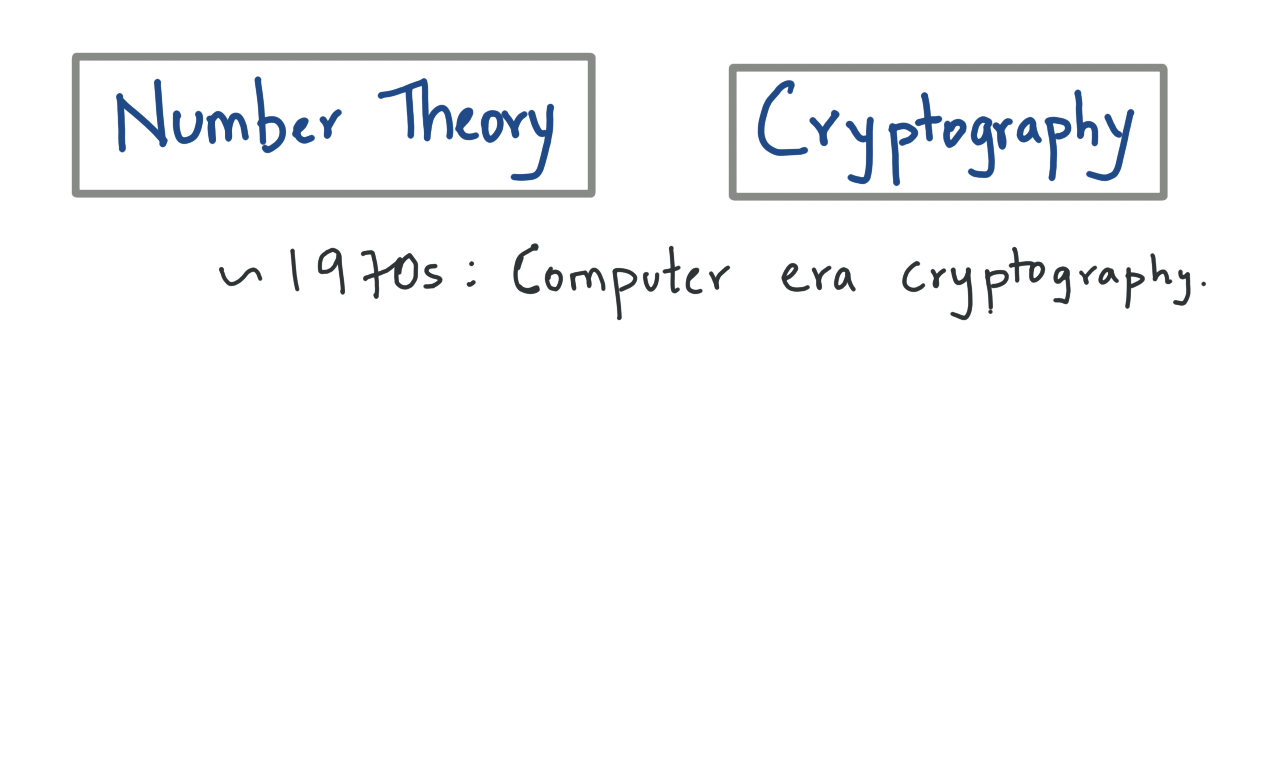 Number Theory Cryptography
~ 1970s: Computer era cryptography.